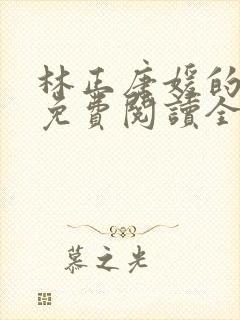 林正唐媛的
免費閱讀全
慕之光